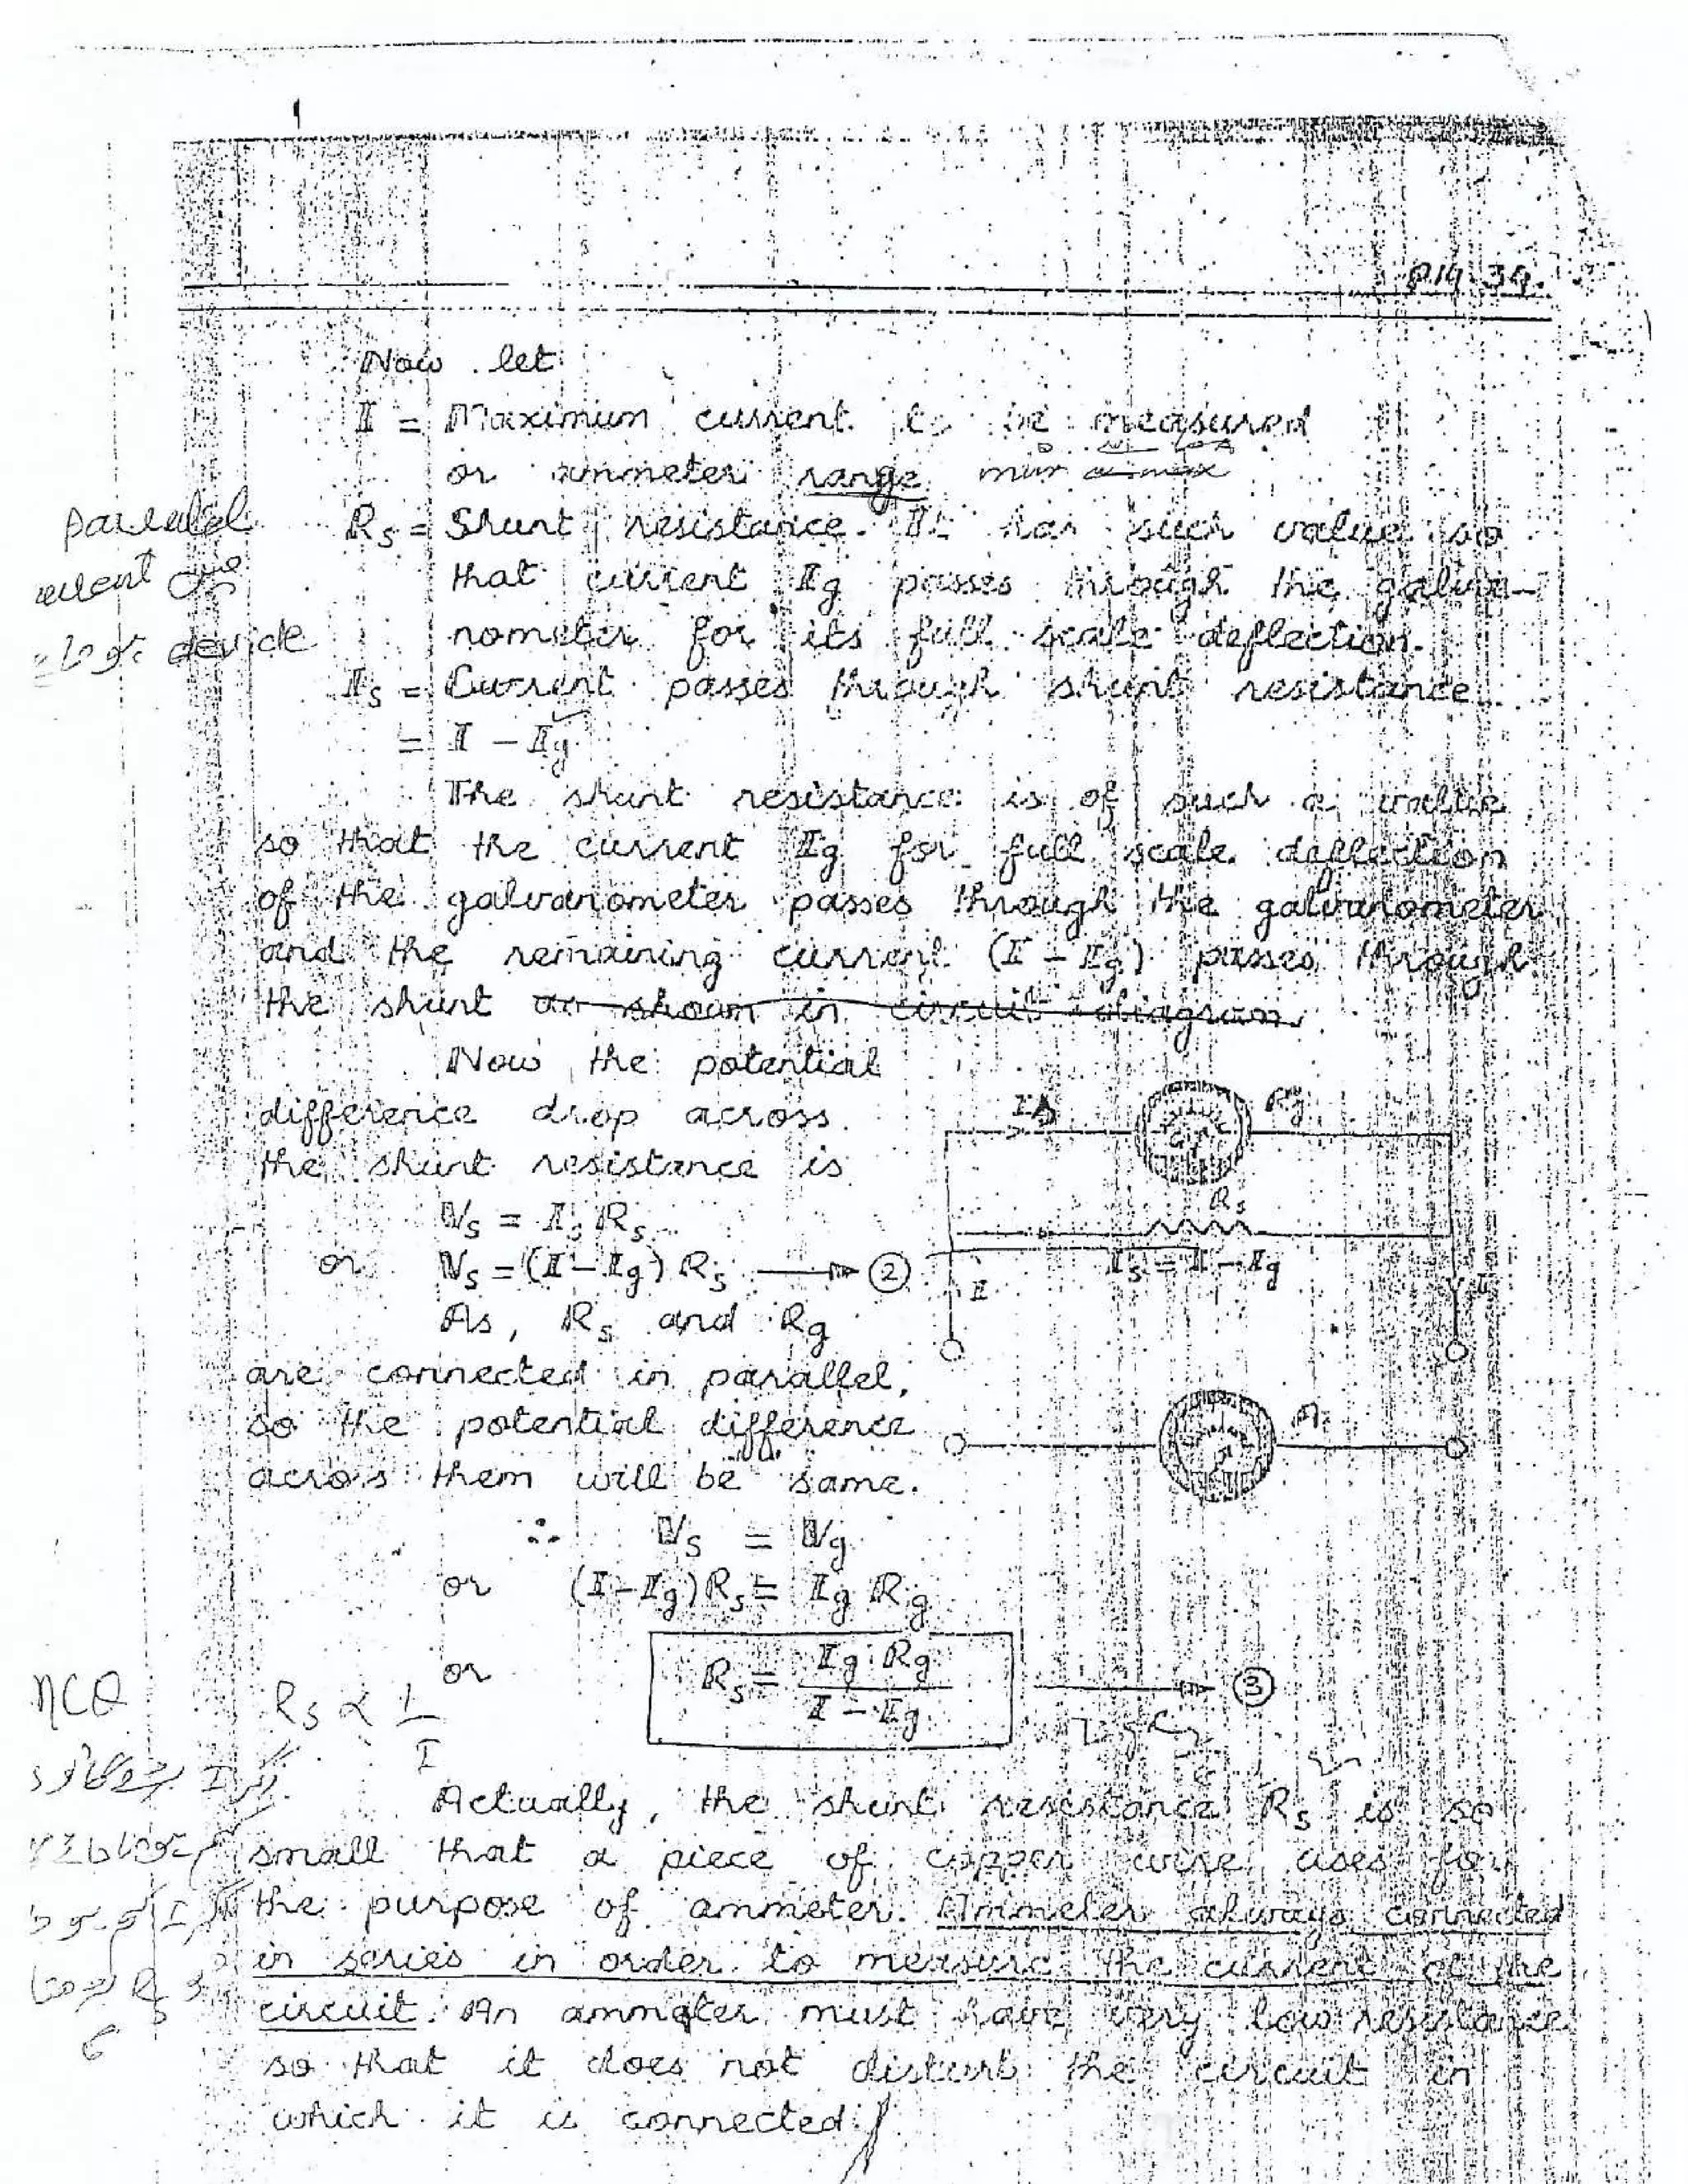 P14.34.
Now let
I = Maximum current to be measured
or ammeter range min a max
Parallel
Rs = Shunt resistance. It has such value so
that current Ig passes through the galva-
device
nometer for its full scale deflection.
Is = Current passes through shunt resistance
= I - Ig
The shunt resistance is of such a value
so that the current Ig for full scale deflection
of the galvanometer passes through the galvanometer
and the remaining current (I - Ig) passes through
the shunt as shown in circuit diagram.
Now the potential
difference drop across
the shunt resistance is
Vs = Is Rs
or Vs = (I - Ig) Rs → ②
As, Rs and Rg
are connected in parallel,
so the potential difference
across them will be same.
Rg
Rs
Is = I - Ig
I
I
A
∴ Vs = Vg
or (I-Ig)Rs = Ig Rg
or Rs = Ig Rg / I - Ig → ③
MCQ Rs ∝ 1/I
Actually, the shunt resistance Rs is so
small that a piece of copper wire uses for
the purpose of ammeter. Ammeter always connected
in series in order to measure the current of the
circuit. An ammeter must have very low resistance
so that it does not disturb the circuit in
which it is connected.